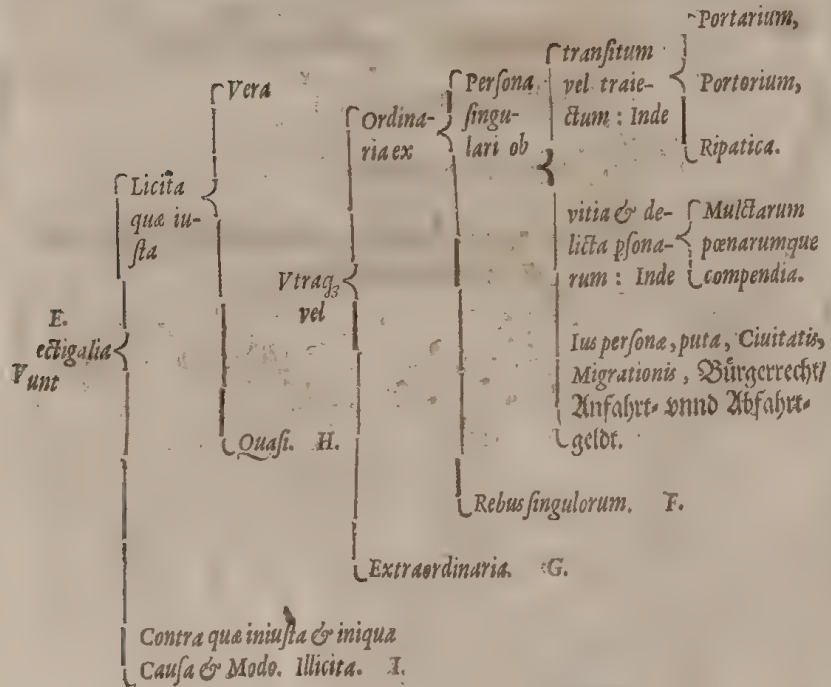 E.
Vectigalia
sunt
Licita
quæ iu-
sta
Vera
Quasi. H.
Vtraq₃
vel
Ordina-
ria ex
Persona
singu-
lari ob
transitum
vel traie-
ctum : Inde
Portarium,
Portorium,
Ripatica.
vitia & de-
licta psona-
rum : Inde
Mulctarum
pœnarumque
compendia.
Ius personæ, puta, Ciuitatis,
Migrationis, Bürgerrecht/
Anfahrt- vnnd Abfahrt-
geldt.
Rebus singulorum. F.
Extraordinaria. G.
Contra quæ iniusta & iniqua
Causa & Modo. Illicita. I.